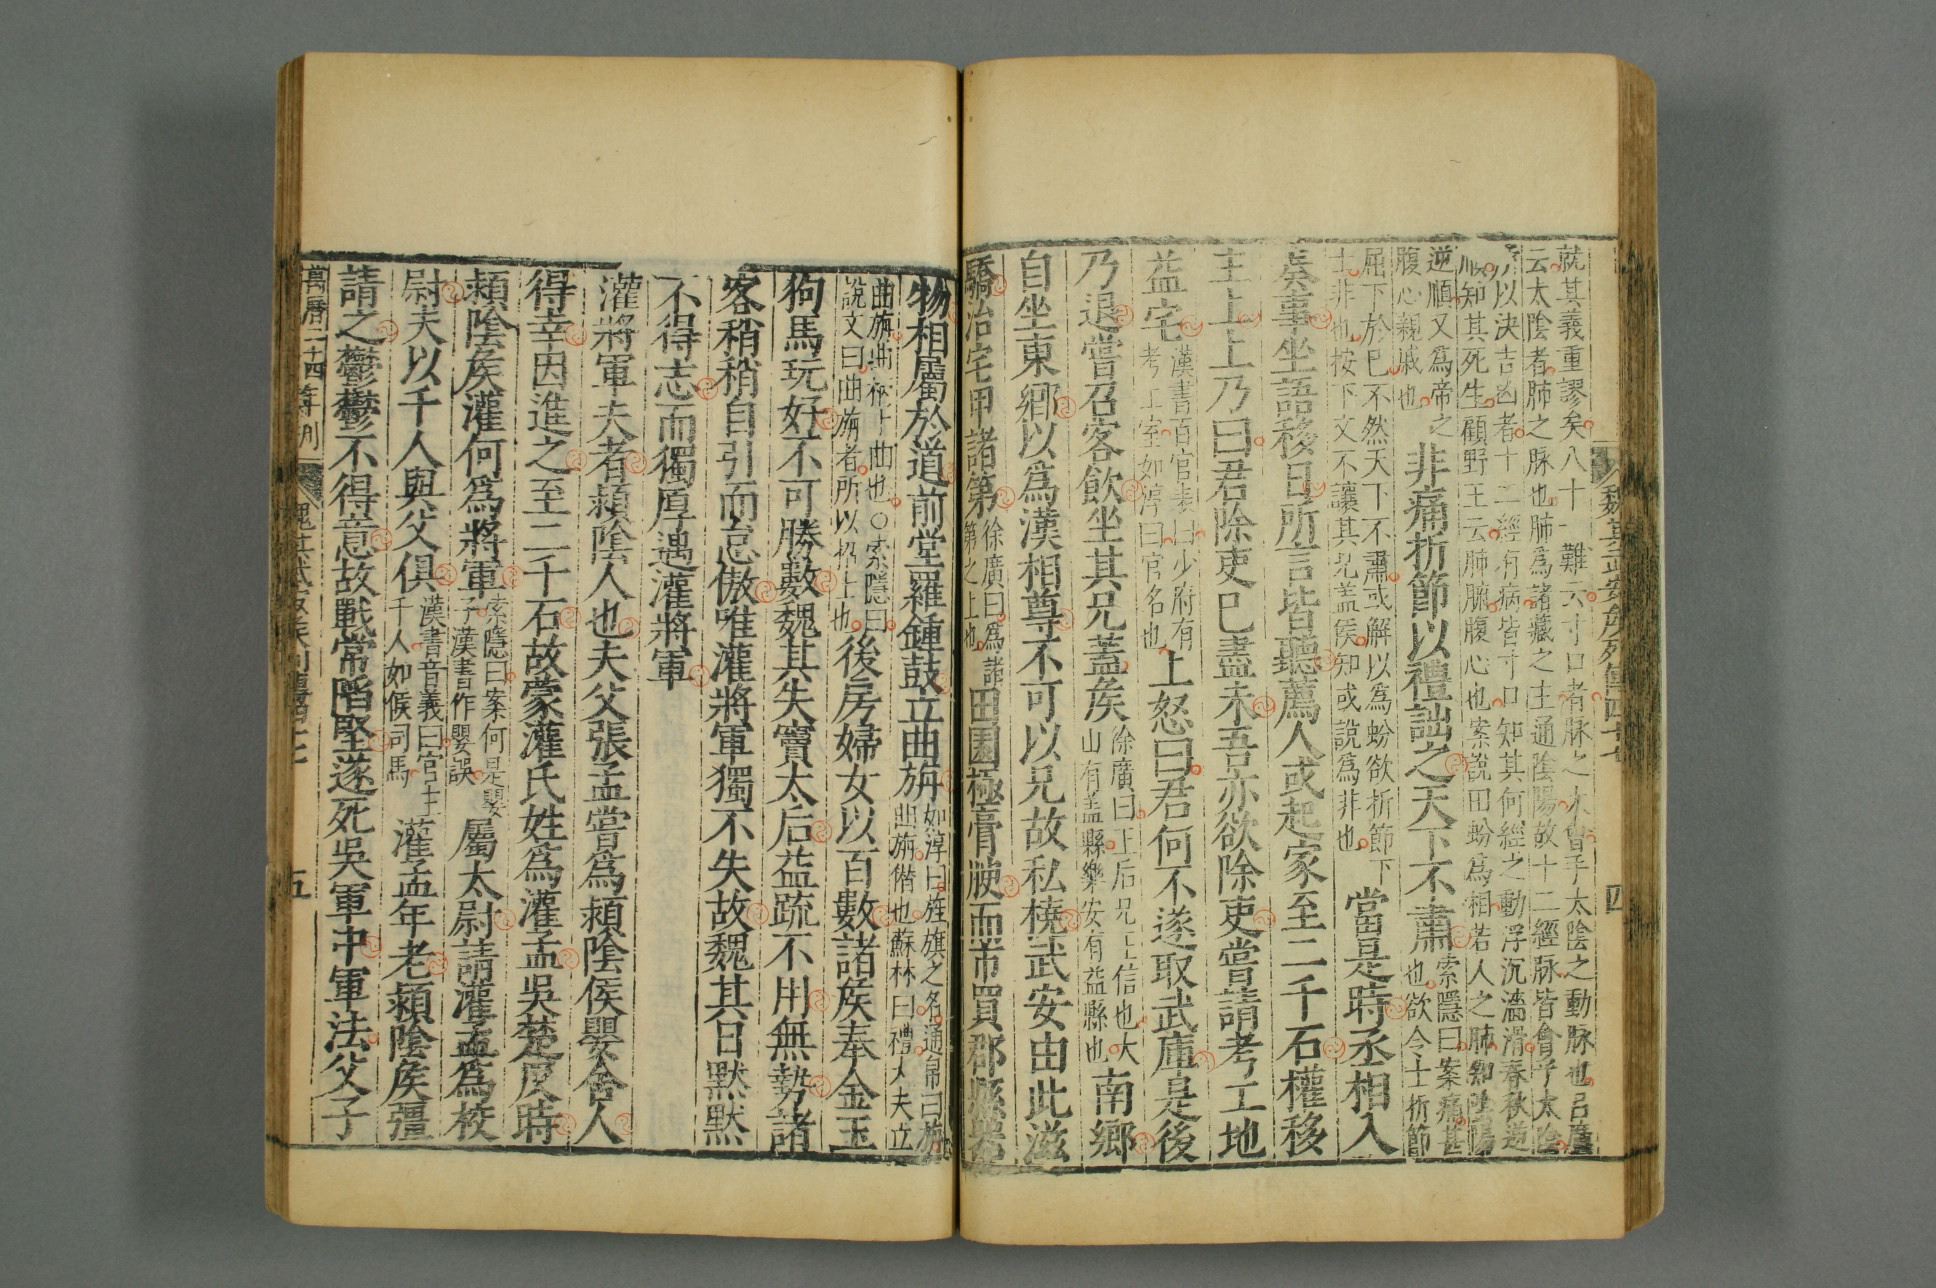 魏其武安侯列傳四十七　四
就其義重謬矣八十一難云寸口者脉之大會手太陰之動脉也呂廣
云太陰者肺之脉也肺為諸藏之主通陰陽故十二經脉皆會乎太陰
所以決吉凶者十二經有病皆寸口知其何經之動浮沉濇滑春秋逆
順知其死生顧野王云肺腑腹心也案說田蚡為相若人之肺知陰陽
逆順又為帝之
腹心親戚也
非痛折節以禮詘之天下不肅
索隱曰案痛甚
也欲令士折節
屈下於巳不然天下不肅或解以為蚡欲折節下
士非也按下文不讓其兄盖侯知或說為非也
當是時丞相入
奏事坐語移日所言皆聽薦人或起家至二千石權移
主上上乃曰君除吏巳盡未吾亦欲除吏嘗請考工地
益宅
漢書百官表曰少府有
考工室如淳曰官名也
上怒曰君何不遂取武庫是後
乃退嘗召客飲坐其兄蓋矦
徐廣曰王后兄王信也太
山有盖縣樂安有益縣也
南鄉
自坐東鄉以爲漢相尊不可以兄故私橈武安由此滋
驕治宅甲諸第
徐廣曰爲諸
第之上也
田園極膏腴而市買郡縣器
物相屬於道前堂羅鍾鼓立曲旃
如淳曰旌旗之名通帛曰旃
曲旃僭也蘇林曰禮大夫立
曲旃曲柄上曲也○索隱曰
說文曰曲旃者所以招士也
後房婦女以百數諸矦奉金玉
狗馬玩好不可勝數魏其失竇太后益疏不用無勢諸
客稍稍自引而怠傲唯灌將軍獨不失故魏其日默默
不得志而獨厚遇灌將軍
灌將軍夫者潁陰人也夫父張孟嘗爲潁陰侯嬰舍人
得幸因進之至二千石故蒙灌氏姓爲灌孟吳楚反時
潁陰矦灌何爲將軍
索隱曰案何是嬰
子漢書作嬰誤
屬太尉請灌孟爲校
尉夫以千人與父俱
漢書音義曰官主
千人如候司馬
灌孟年老潁陰矦彊
請之鬱鬱不得意故戰常陷堅遂死吳軍中軍法父子
萬曆二十四年刋　魏其武安矦列傳四十七　五